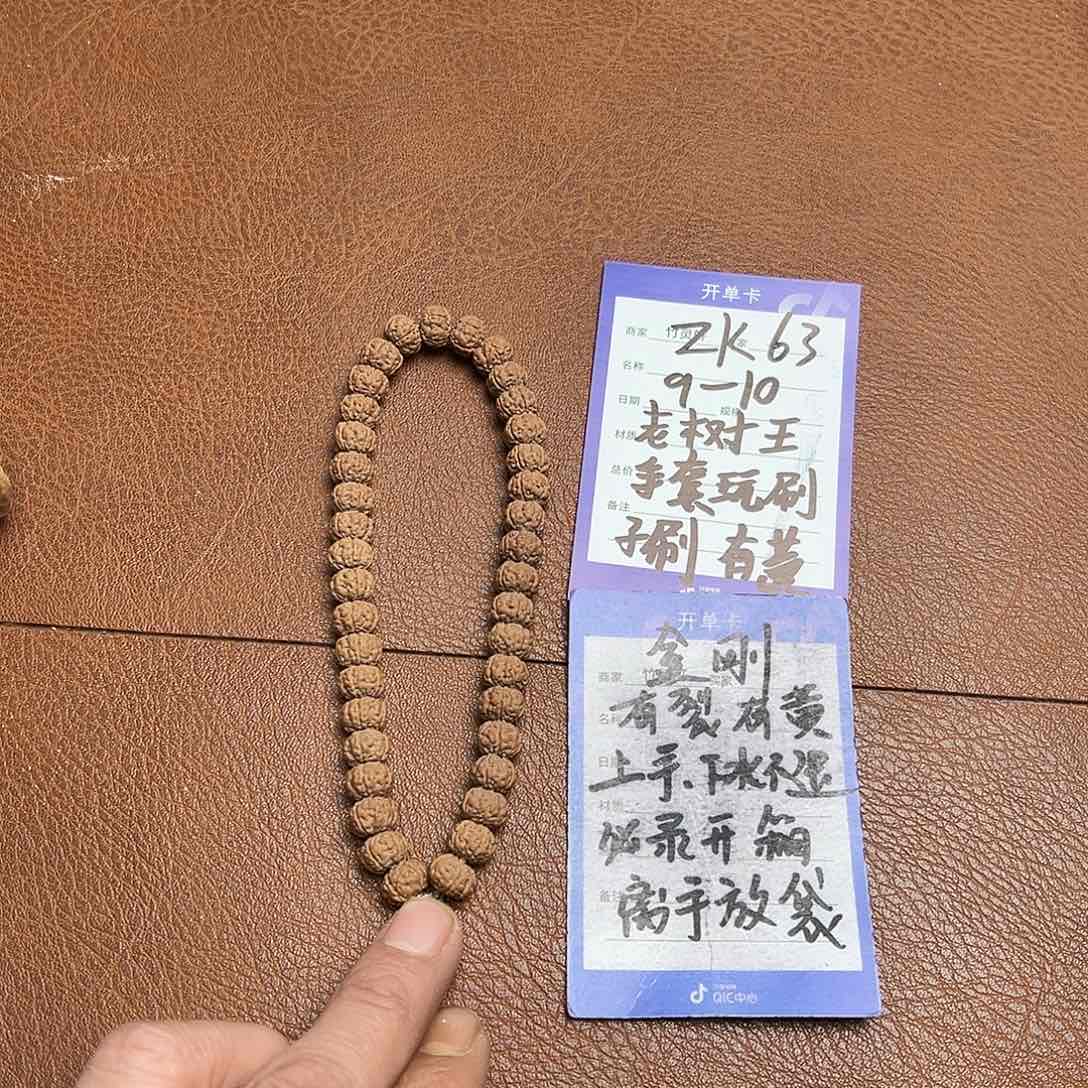 开单卡
商家 ZK63
名称
9-10
日期
材质 老树王
总价 手套玩刷
备注 子刷 有黄
开单卡
金刚
商家
名称 有裂有黄
日期 上手、下水不退
材质
必录开箱
备注 离手放袋
QIC中心